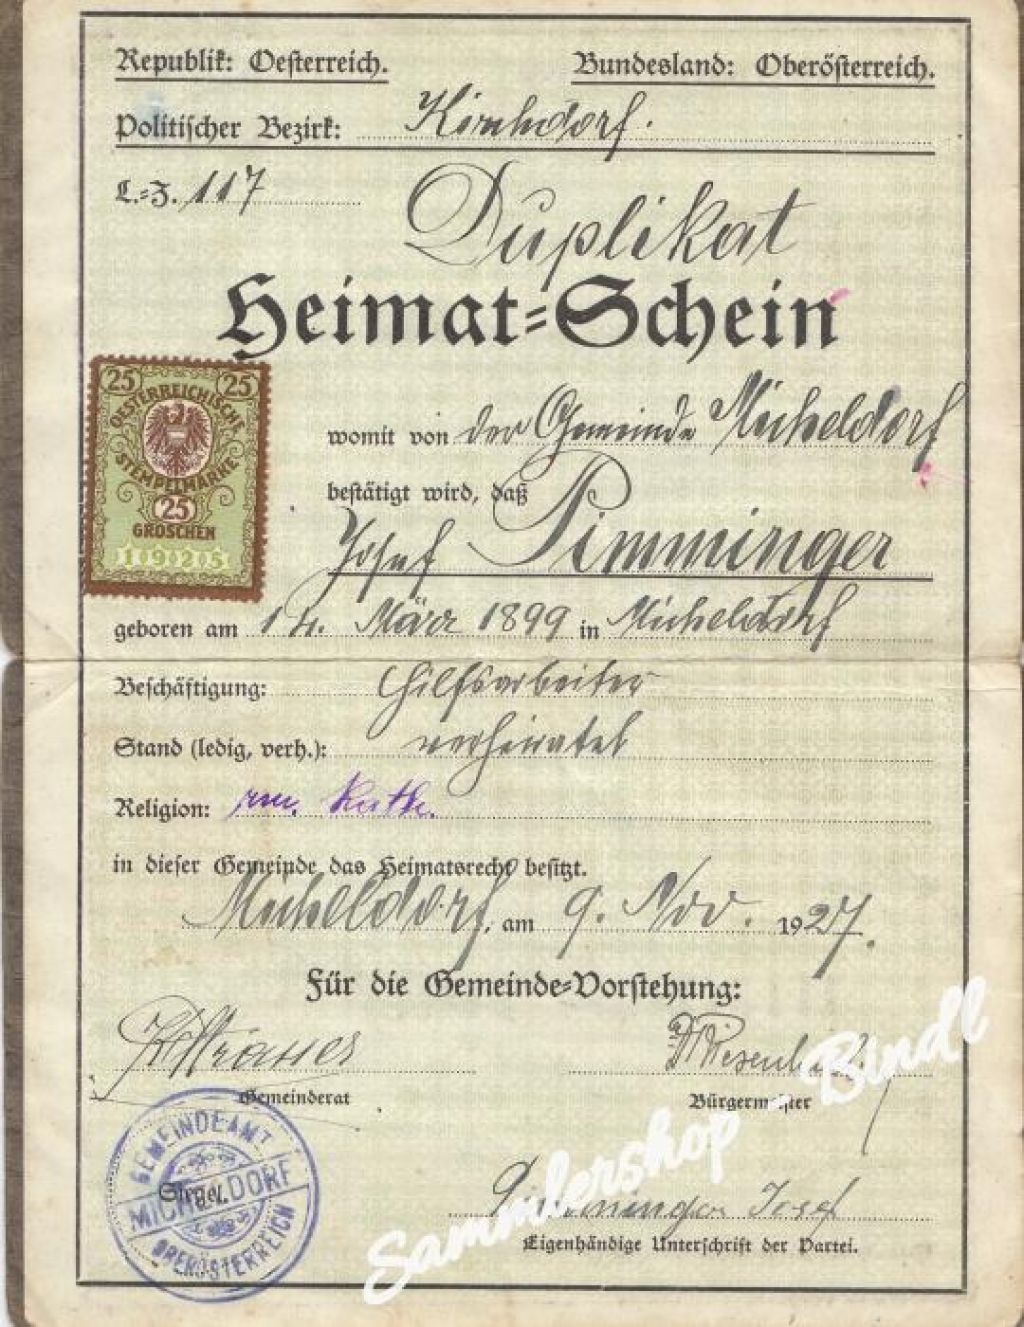 Republik: Oesterreich. Bundesland: Oberösterreich.
Politischer Bezirk: Kirchdorf.
L.-Z. 117
Duplikat
Heimat-Schein
25 25
OESTERREICHISCHE
STEMPELMARKE
25
GROSCHEN
1925
womit von der Gemeinde Micheldorf
bestätigt wird, daß
Josef Pimminger
geboren am 14. März 1899 in Micheldorf
Beschäftigung: Hilfsarbeiter
Stand (ledig, verh.): verheiratet
Religion: röm. kath.
in dieser Gemeinde das Heimatsrecht besitzt.
Micheldorf, am 9. Nov. 1927.
Für die Gemeinde-Vorstehung:
Gemeinderat Bürgermeister
GEMEINDEAMT
MICHELDORF
Siegel.
OBERÖSTERREICH
Pimminger Josef
Eigenhändige Unterschrift der Partei.
Sammlershop Bindl